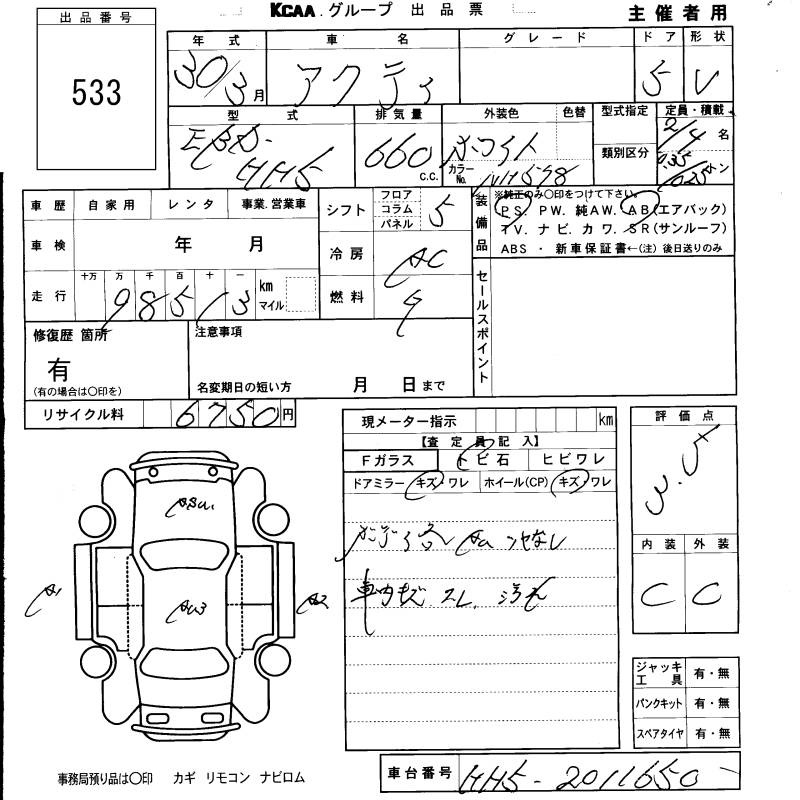 KCAA グループ 出品票 主催者用
出品番号
533
年式 車名 グレード ドア 形状
30/3月 アクティ 5 V
型式 排気量 外装色 色替 型式指定 定員・積載
EBD-HH5 660 c.c. ホワイト 類別区分 2/4名
カラーNo. NH578 0.35/0.25トン
車歴 自家用 レンタ 事業.営業車
シフト フロア コラム パネル 5
装備品 ※純正のみ○印をつけて下さい。
PS. PW. 純AW. AB(エアバック)
TV. ナビ. カワ. SR(サンルーフ)
ABS ・ 新車保証書←(注) 後日送りのみ
車検 年 月
冷房 AC
走行 十万 万 千 百 十 一 km マイル
98513
燃料 G
セールスポイント
修復歴 箇所
有
(有の場合は○印を)
注意事項
名変期日の短い方 月 日まで
リサイクル料 6750円
現メーター指示 km
【査定員記入】
Fガラス トビ石 ヒビワレ
ドアミラー キズ・ワレ ホイール(CP) キズ・ワレ
車内キズ スレ 汚れ
評価点
3.5
内装 外装
C C
A1 AU3 A2
ジャッキ工具 有・無
パンクキット 有・無
スペアタイヤ 有・無
事務局預り品は○印 カギ リモコン ナビロム
車台番号 HH5-2011650